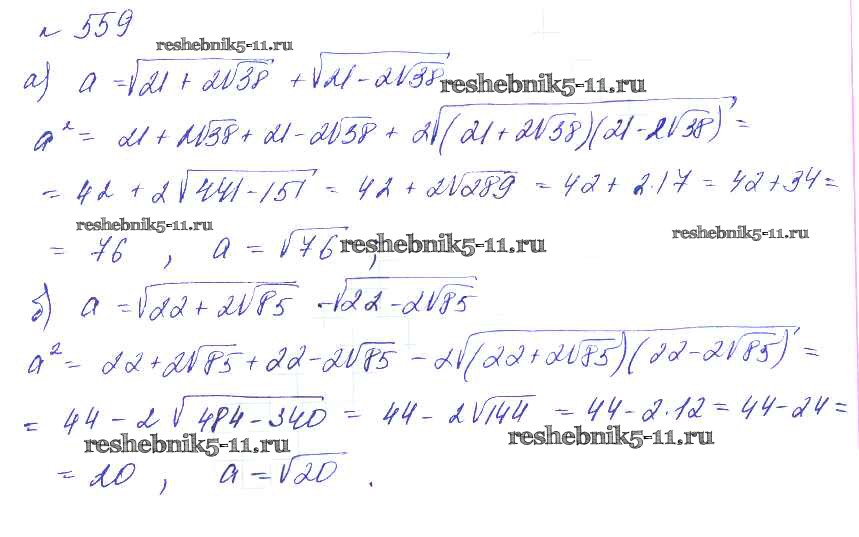 № 559
reshebnik5-11.ru
а) a = √(21 + 2√38) + √(21 - 2√38)
reshebnik5-11.ru
a² = 21 + 2√38 + 21 - 2√38 + 2√((21 + 2√38)(21 - 2√38)) =
= 42 + 2√(441 - 151) = 42 + 2√289 = 42 + 2·17 = 42 + 34 =
reshebnik5-11.ru
reshebnik5-11.ru
= 76 , a = √76 ,
reshebnik5-11.ru
б) a = √(22 + 2√85) - √(22 - 2√85)
a² = 22 + 2√85 + 22 - 2√85 - 2√((22 + 2√85)(22 - 2√85)) =
= 44 - 2√(484 - 340) = 44 - 2√144 = 44 - 2·12 = 44 - 24 =
reshebnik5-11.ru
reshebnik5-11.ru
= 20 , a = √20 .